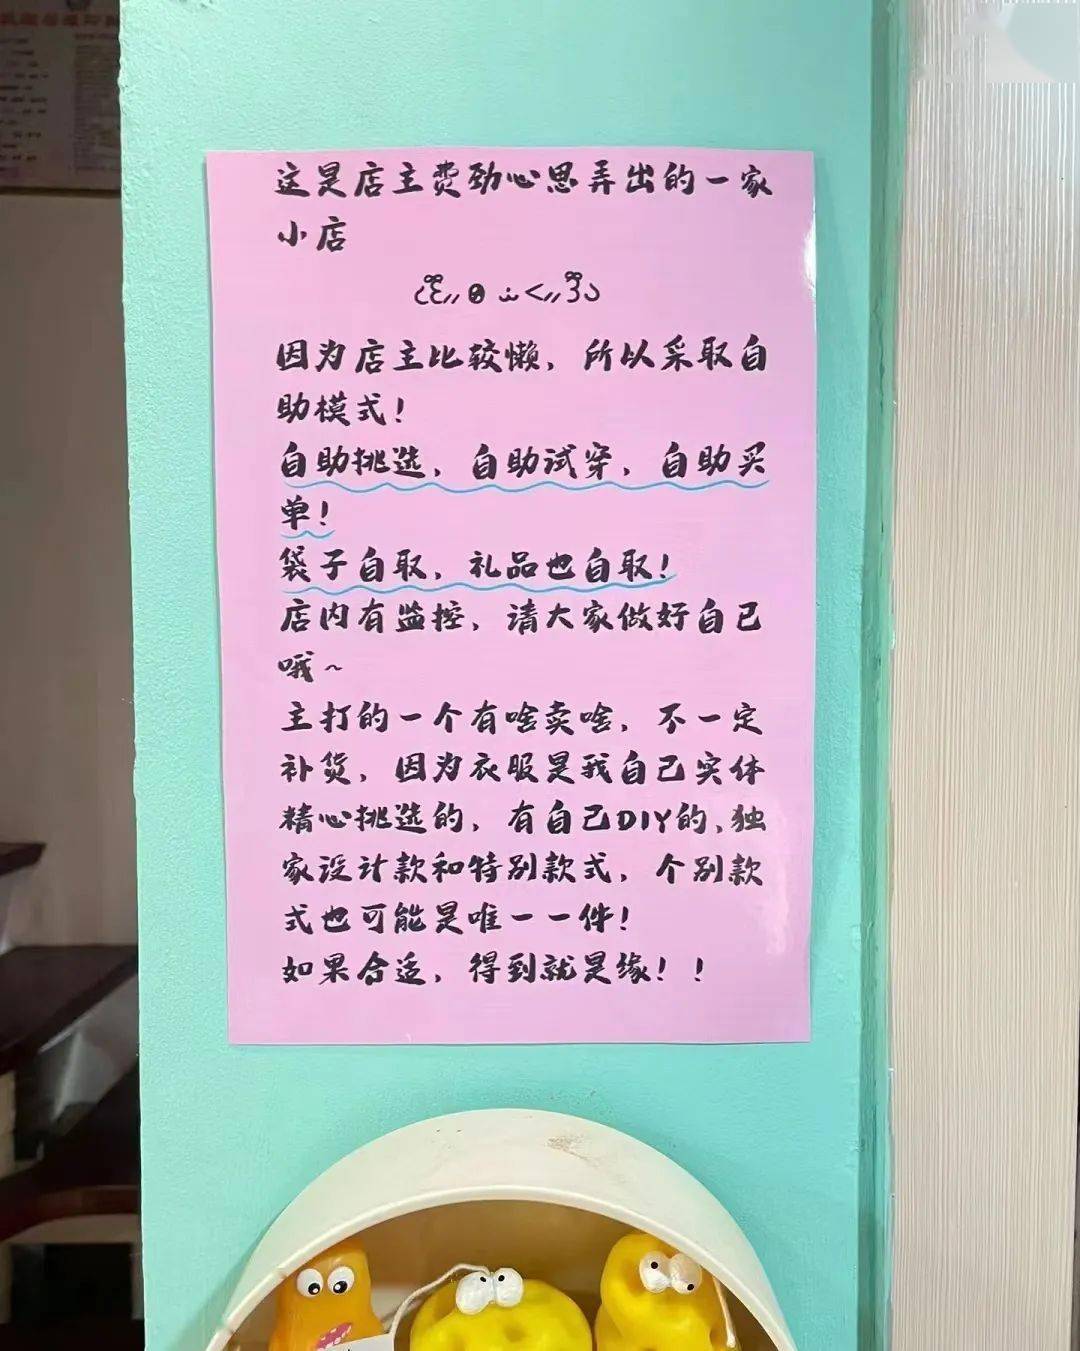 这是店主费劲心思弄出的一家
小店
因为店主比较懒，所以采取自
助模式！
自助挑选，自助试穿，自助买
单！
袋子自取，礼品也自取！
店内有监控，请大家做好自己
哦~
主打的一个有啥卖啥，不一定
补货，因为衣服是我自己实体
精心挑选的，有自己DIY的、独
家设计款和特别款式，个别款
式也可能是唯一一件！
如果合适，得到就是缘！！